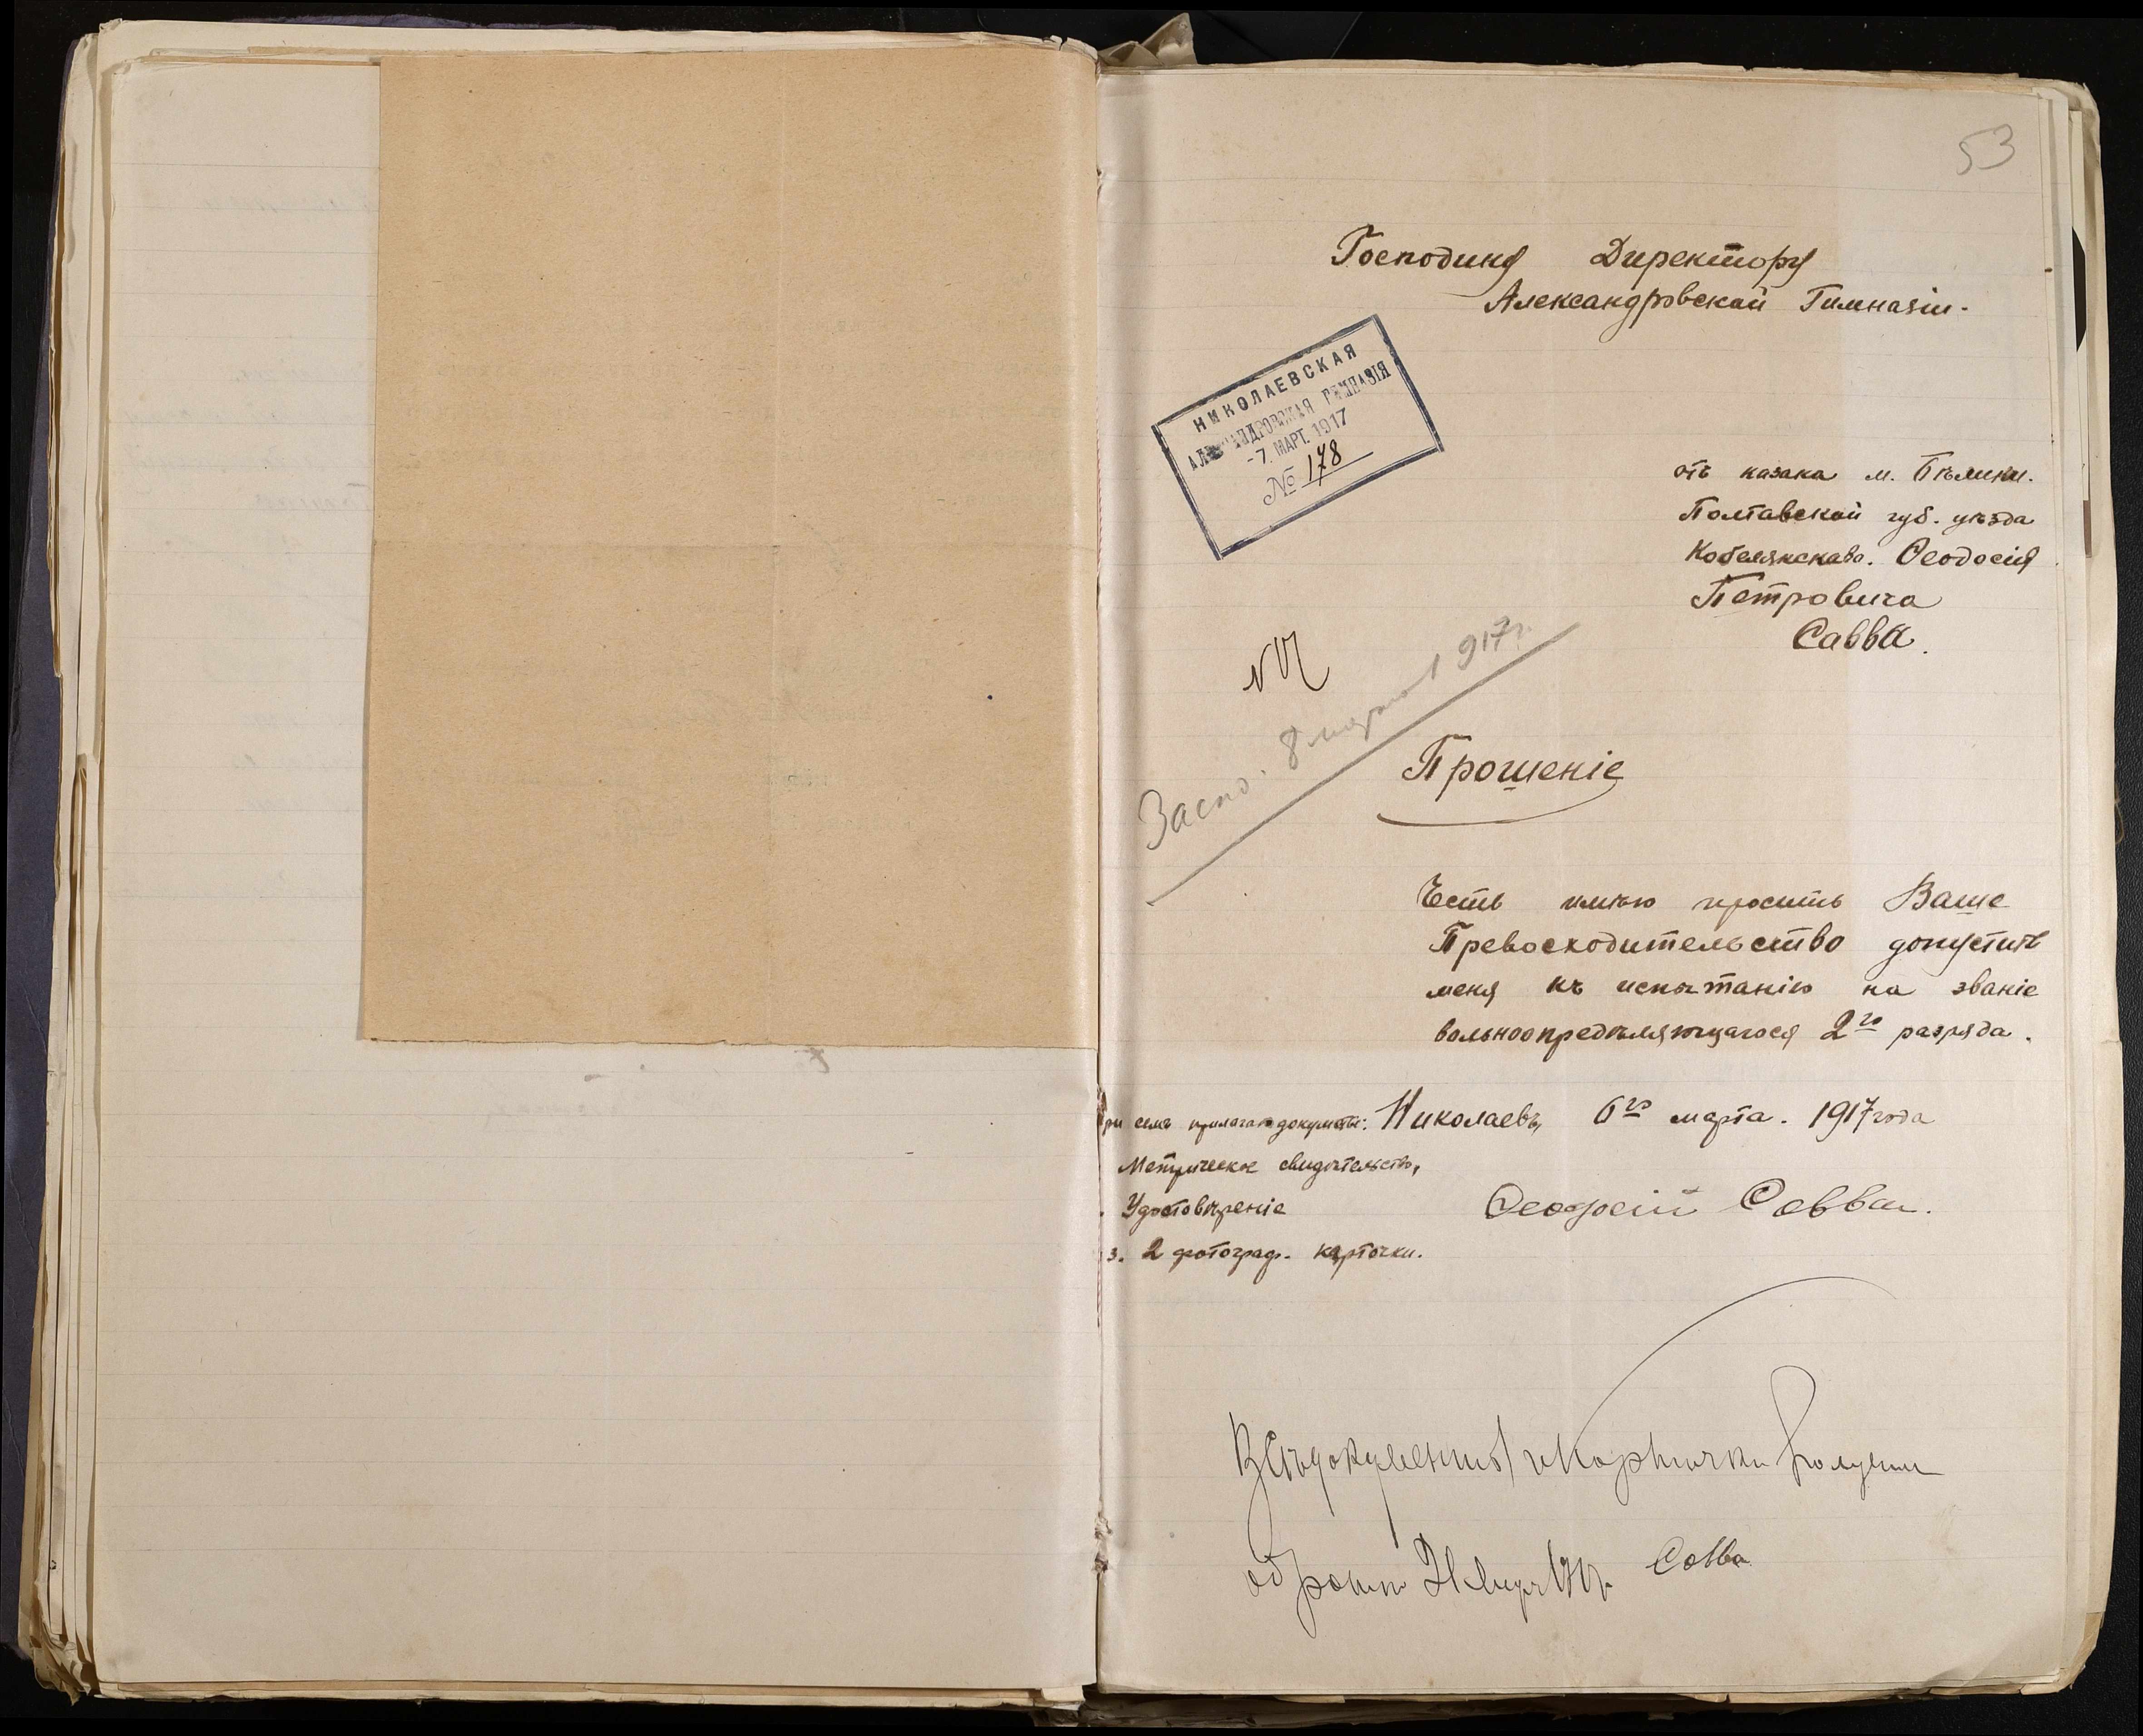 53
Господину Директору
Александровской Гимназіи.
НИКОЛАЕВСКАЯ
АЛЕКСАНДРОВСКАЯ ГИМНАЗІЯ
-7. МАРТ. 1917
№ 178
отъ казака м. Бѣлики.
Полтавской губ. уѣзда
Кобелякскаго. Ѳеодосія
Петровича
Савва.
8 марта 1917 г.
Прошеніе
Честь имѣю просить Ваше
Превосходительство допустить
меня къ испытанію на званіе
вольноопредѣляющагося 2го разряда.
Николаевъ, 6го марта. 1917 года
ри семъ прилагаю документы:
Метрическое свидѣтельство,
Удостовѣреніе
3. 2 фотограф. карточки.
Ѳеодосій Савва.
Всѣ документы и карточки получилъ
обратно
Савва